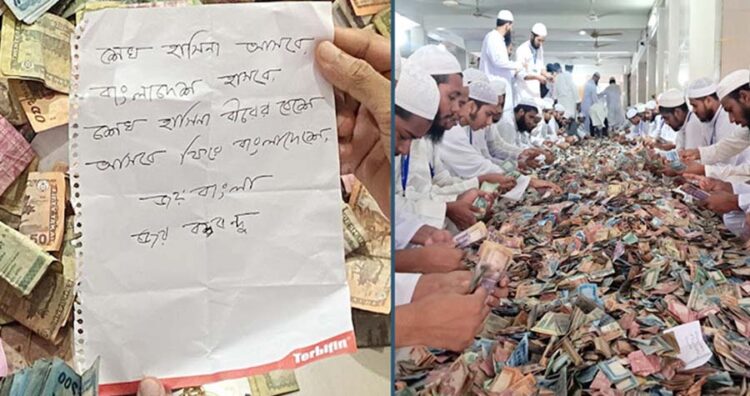 শেখ হাসিনা আসবে,
বাংলাদেশ হাসবে,
শেখ হাসিনা বীরের বেশে
আসবে ফিরে বাংলাদেশে,
জয় বাংলা
জয় বঙ্গবন্ধু
Terbifin
50
500